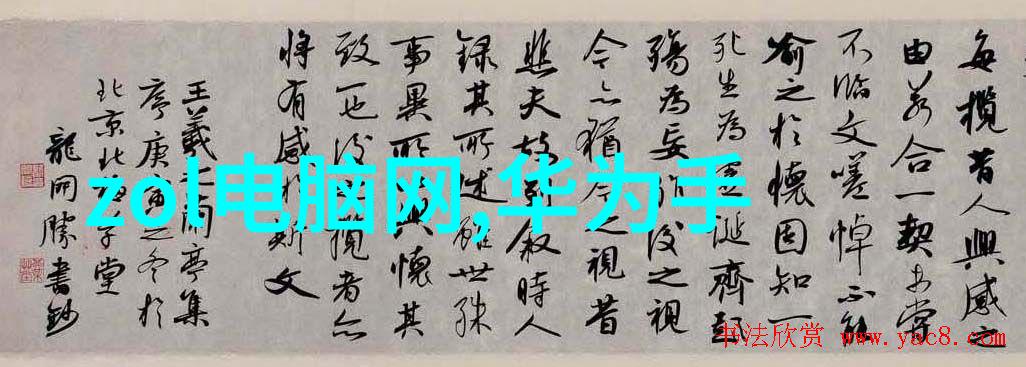 每攬昔人興感之
由若合一契未嘗
不臨文嗟悼不能
喻之於懷固知一
死生為虛誕齊彭
殤為妄作後之視
今亦猶今之視昔
悲夫故列敘時人
錄其所述雖世殊
事異所以興懷其
致一也後攬者亦
將有感於斯文
王羲之蘭亭集
序庚寅之冬於
北京北學堂
龍開勝書鈔
zol电脑网,华为手
书法欣赏
www.yac8.com